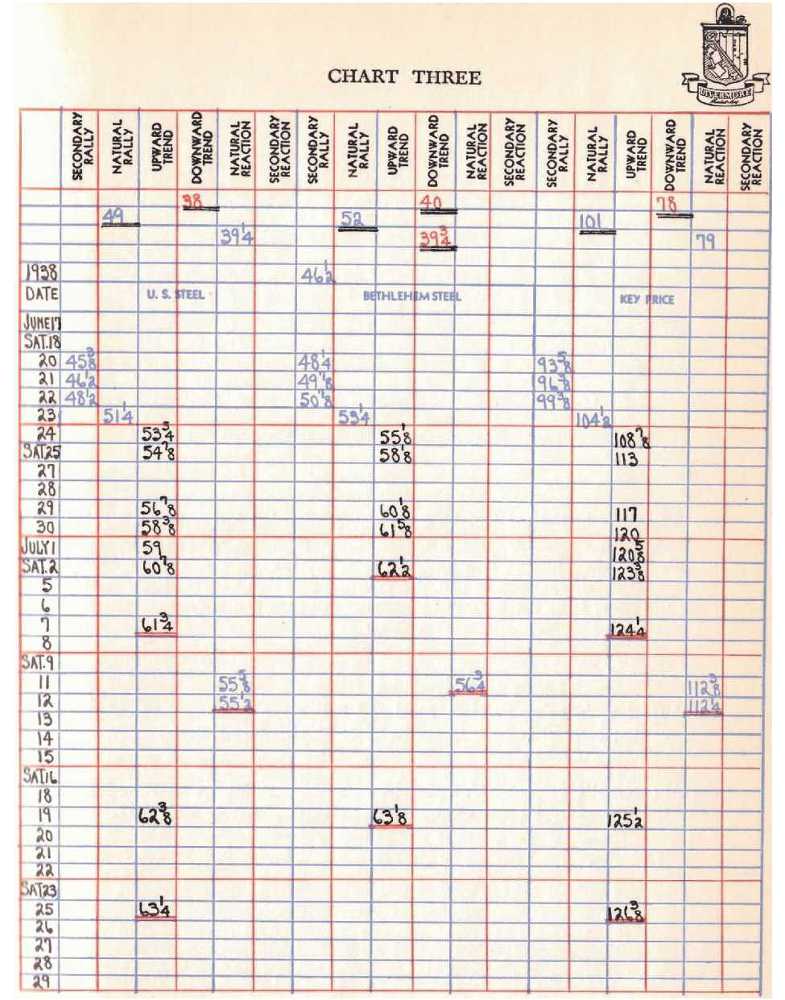 LIVERMORE
CHART THREE
SECONDARY RALLY NATURAL RALLY UPWARD TREND DOWNWARD TREND NATURAL REACTION SECONDARY REACTION SECONDARY RALLY NATURAL RALLY UPWARD TREND DOWNWARD TREND NATURAL REACTION SECONDARY REACTION SECONDARY RALLY NATURAL RALLY UPWARD TREND DOWNWARD TREND NATURAL REACTION SECONDARY REACTION
38 40 78
49 52 101
39 1/4 39 3/4 79
1938 46 1/2
DATE U. S. STEEL BETHLEHEM STEEL KEY PRICE
JUNE 17
SAT.18
20 45 3/8 48 1/4 93 5/8
21 46 1/2 49 7/8 96 3/8
22 48 1/2 50 7/8 99 3/8
23 51 1/4 53 1/4 104 1/2
24 53 3/4 55 1/8 108 7/8
SAT.25 54 7/8 58 1/8 113
27
28
29 56 7/8 60 1/8 117
30 58 3/8 61 5/8 120
JULY 1 59 120 5/8
SAT.2 60 7/8 62 1/2 123 3/8
5
6
7 61 3/4 124 1/4
8
SAT.9
11 55 5/8 56 3/4 112 3/8
12 55 1/2 112 1/4
13
14
15
SAT16
18
19 62 3/8 63 1/8 125 1/2
20
21
22
SAT23
25 63 1/4 126 3/8
26
27
28
29